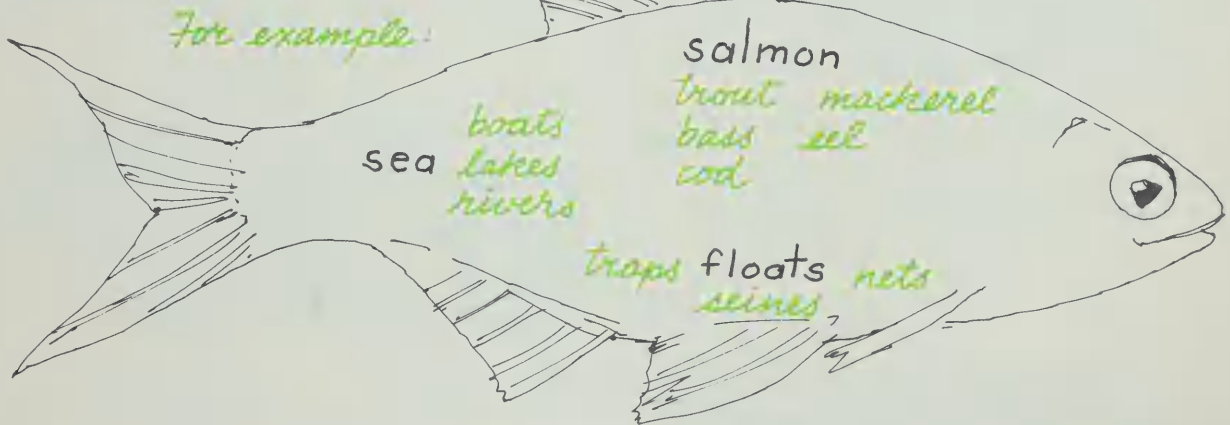 For example:
salmon
trout mackerel
bass eel
cod
boats
sea lakes
rivers
traps floats nets
seines